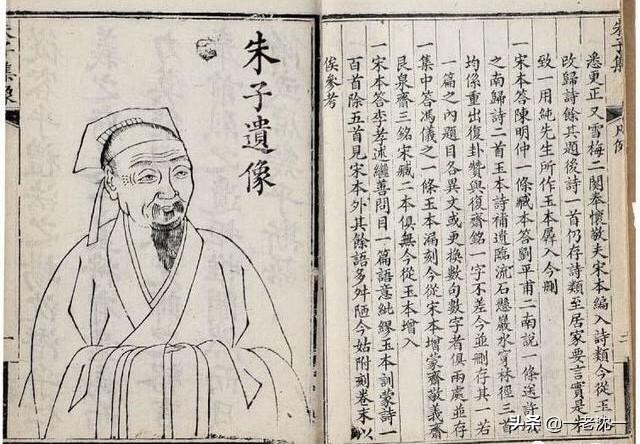 朱子集
凡例
二
悉更正又雪梅二闋奉懷敬夫宋本編入詩類今從玉
改歸詩餘其題後詩一首仍存詩類至居家要言實是朱
致一用純先生所作玉本羼入今刪
一宋本答陳明仲一條臧本答劉平甫二南說一條送許
之南歸詩二首玉本詩補遺臨流石懸巖水穿林徑三首
均係重出復卦贊與復齋銘一字不差今並刪存其一若
一篇之內題目各異文或更換數句數字者俱兩處並存
一集中答馮儀之一條玉本漏刻今從宋本增蒙齋敬義齋
艮泉齋三銘宋臧二本俱無今從玉本增入
一宋本答李孝述繼善問目一篇語意純繆玉本訓蒙詩一
百首除五首見宋本外其餘語多舛陋今姑附刻卷末以
俟參考
朱子遺像
头条 @一老沈一